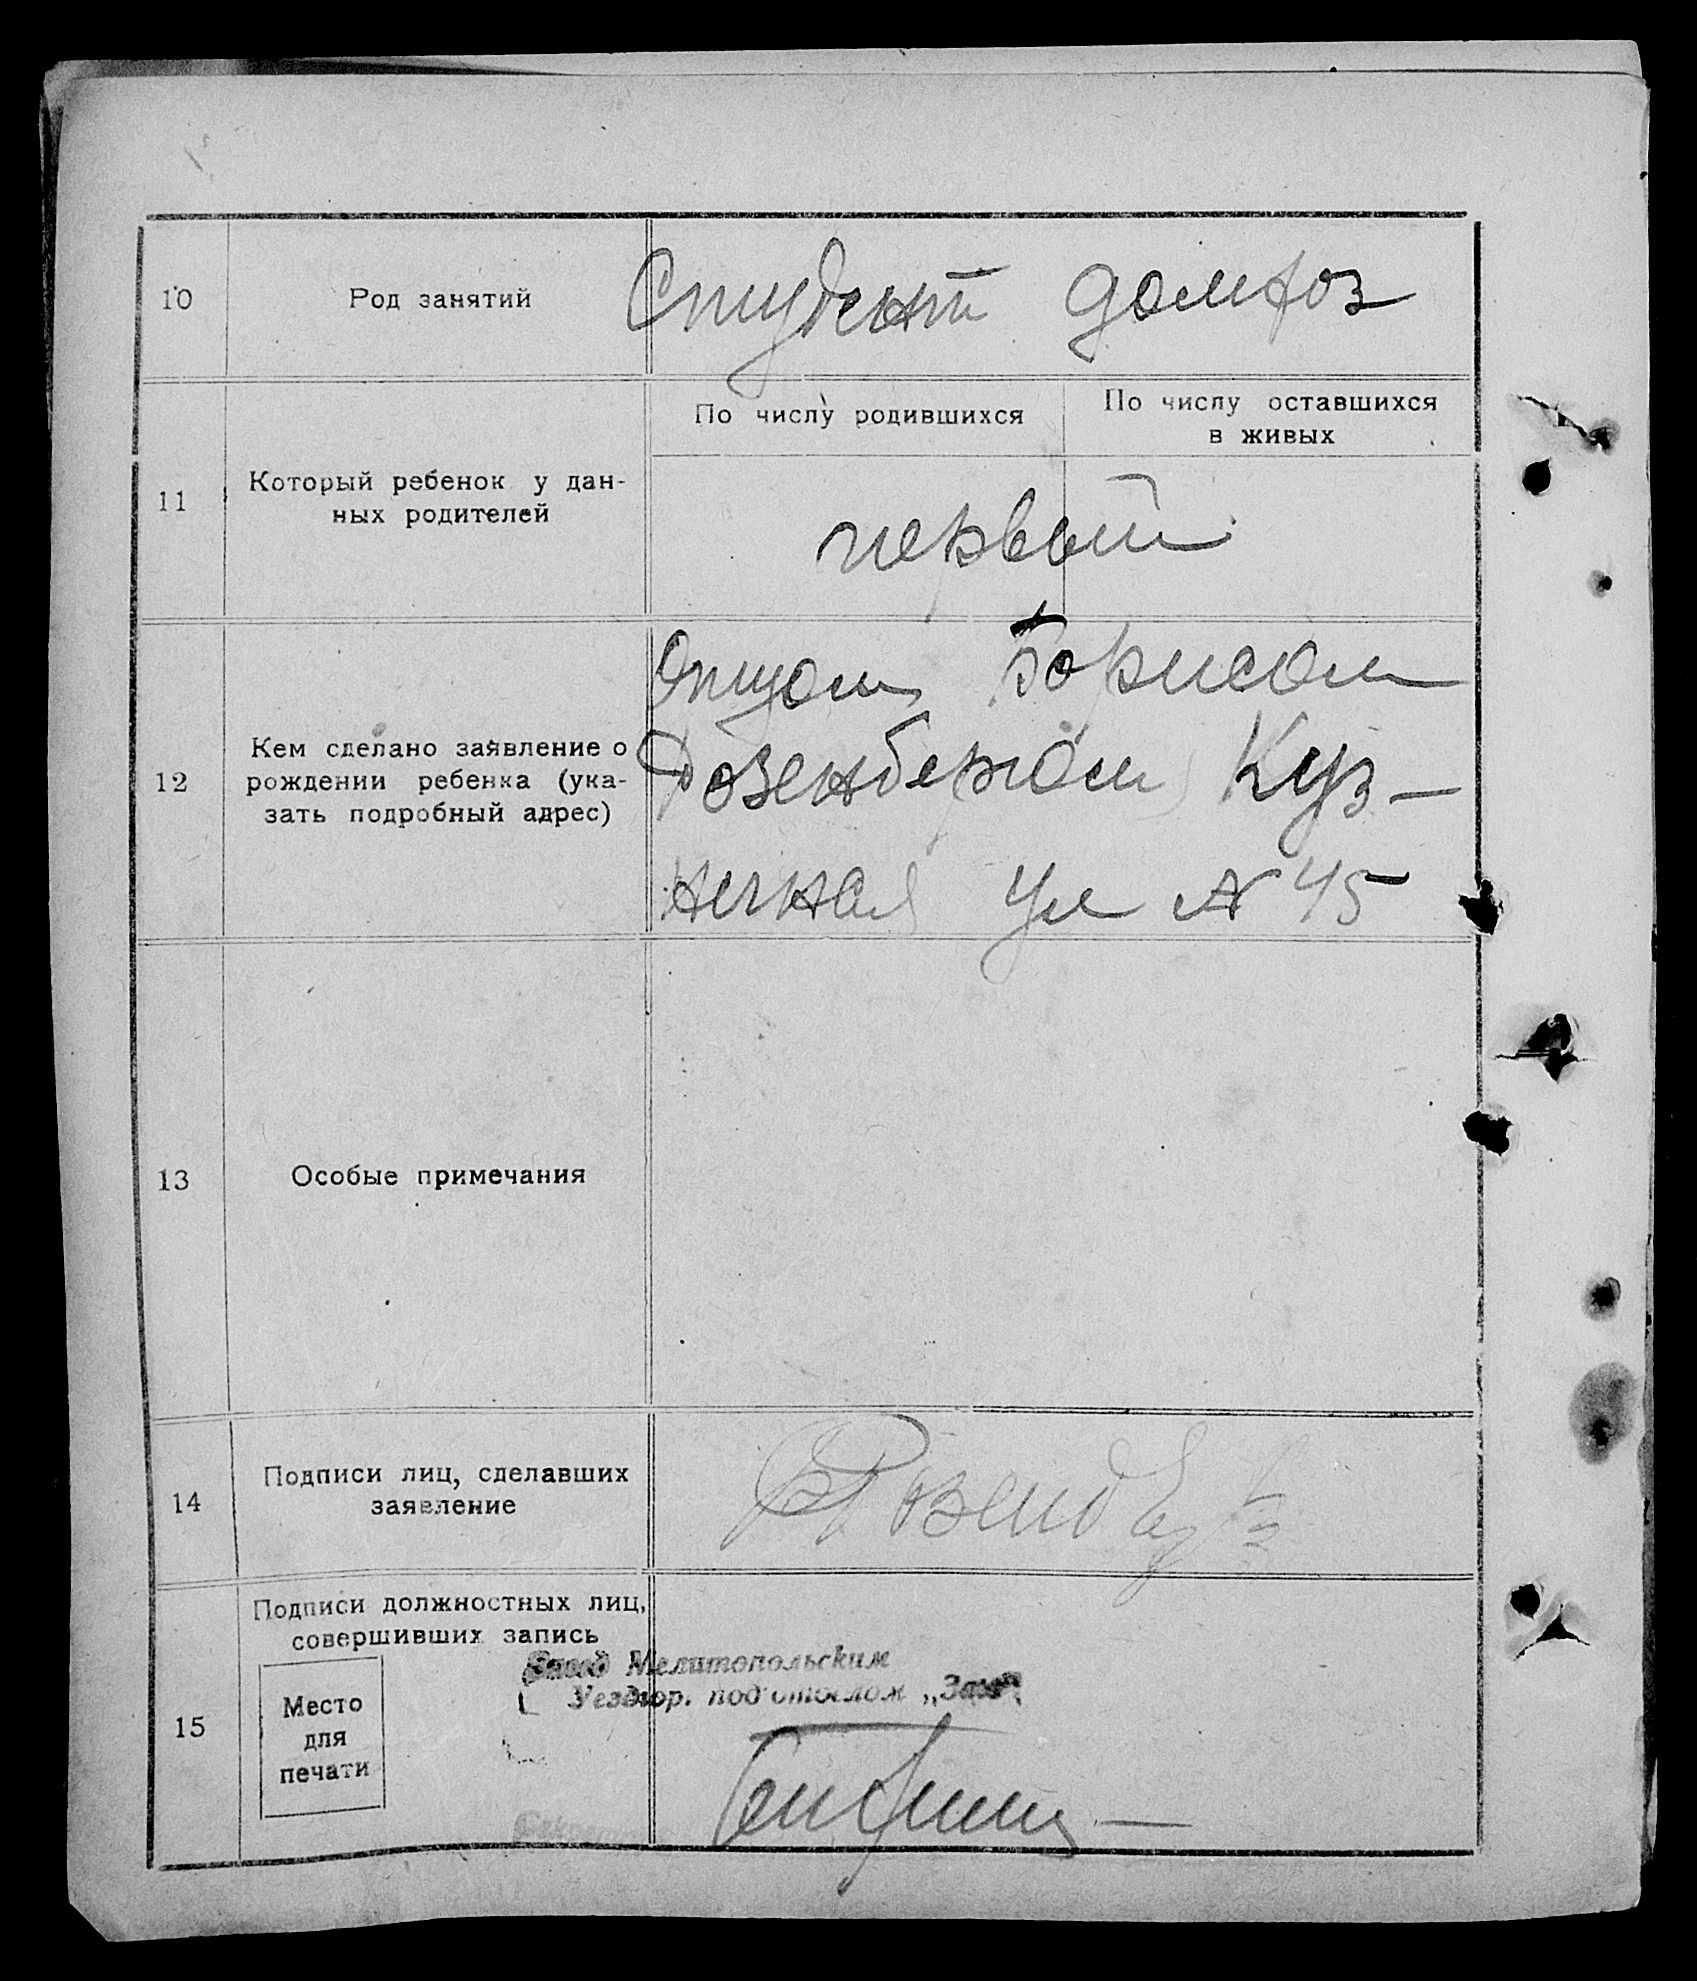 10
Род занятий
Студент домхоз
По числу родившихся
По числу оставшихся
в живых
11
Который ребенок у дан-
ных родителей
первый
12
Кем сделано заявление о
рождении ребенка (ука-
зать подробный адрес)
Отцом Борисом
Розенбергом Куз-
нечная ул № 45
13
Особые примечания
14
Подписи лиц, сделавших
заявление
15
Подписи должностных лиц,
совершивших запись
Завед Мелитопольским
Уездгор. под'отделом „Загс"
Место
для
печати